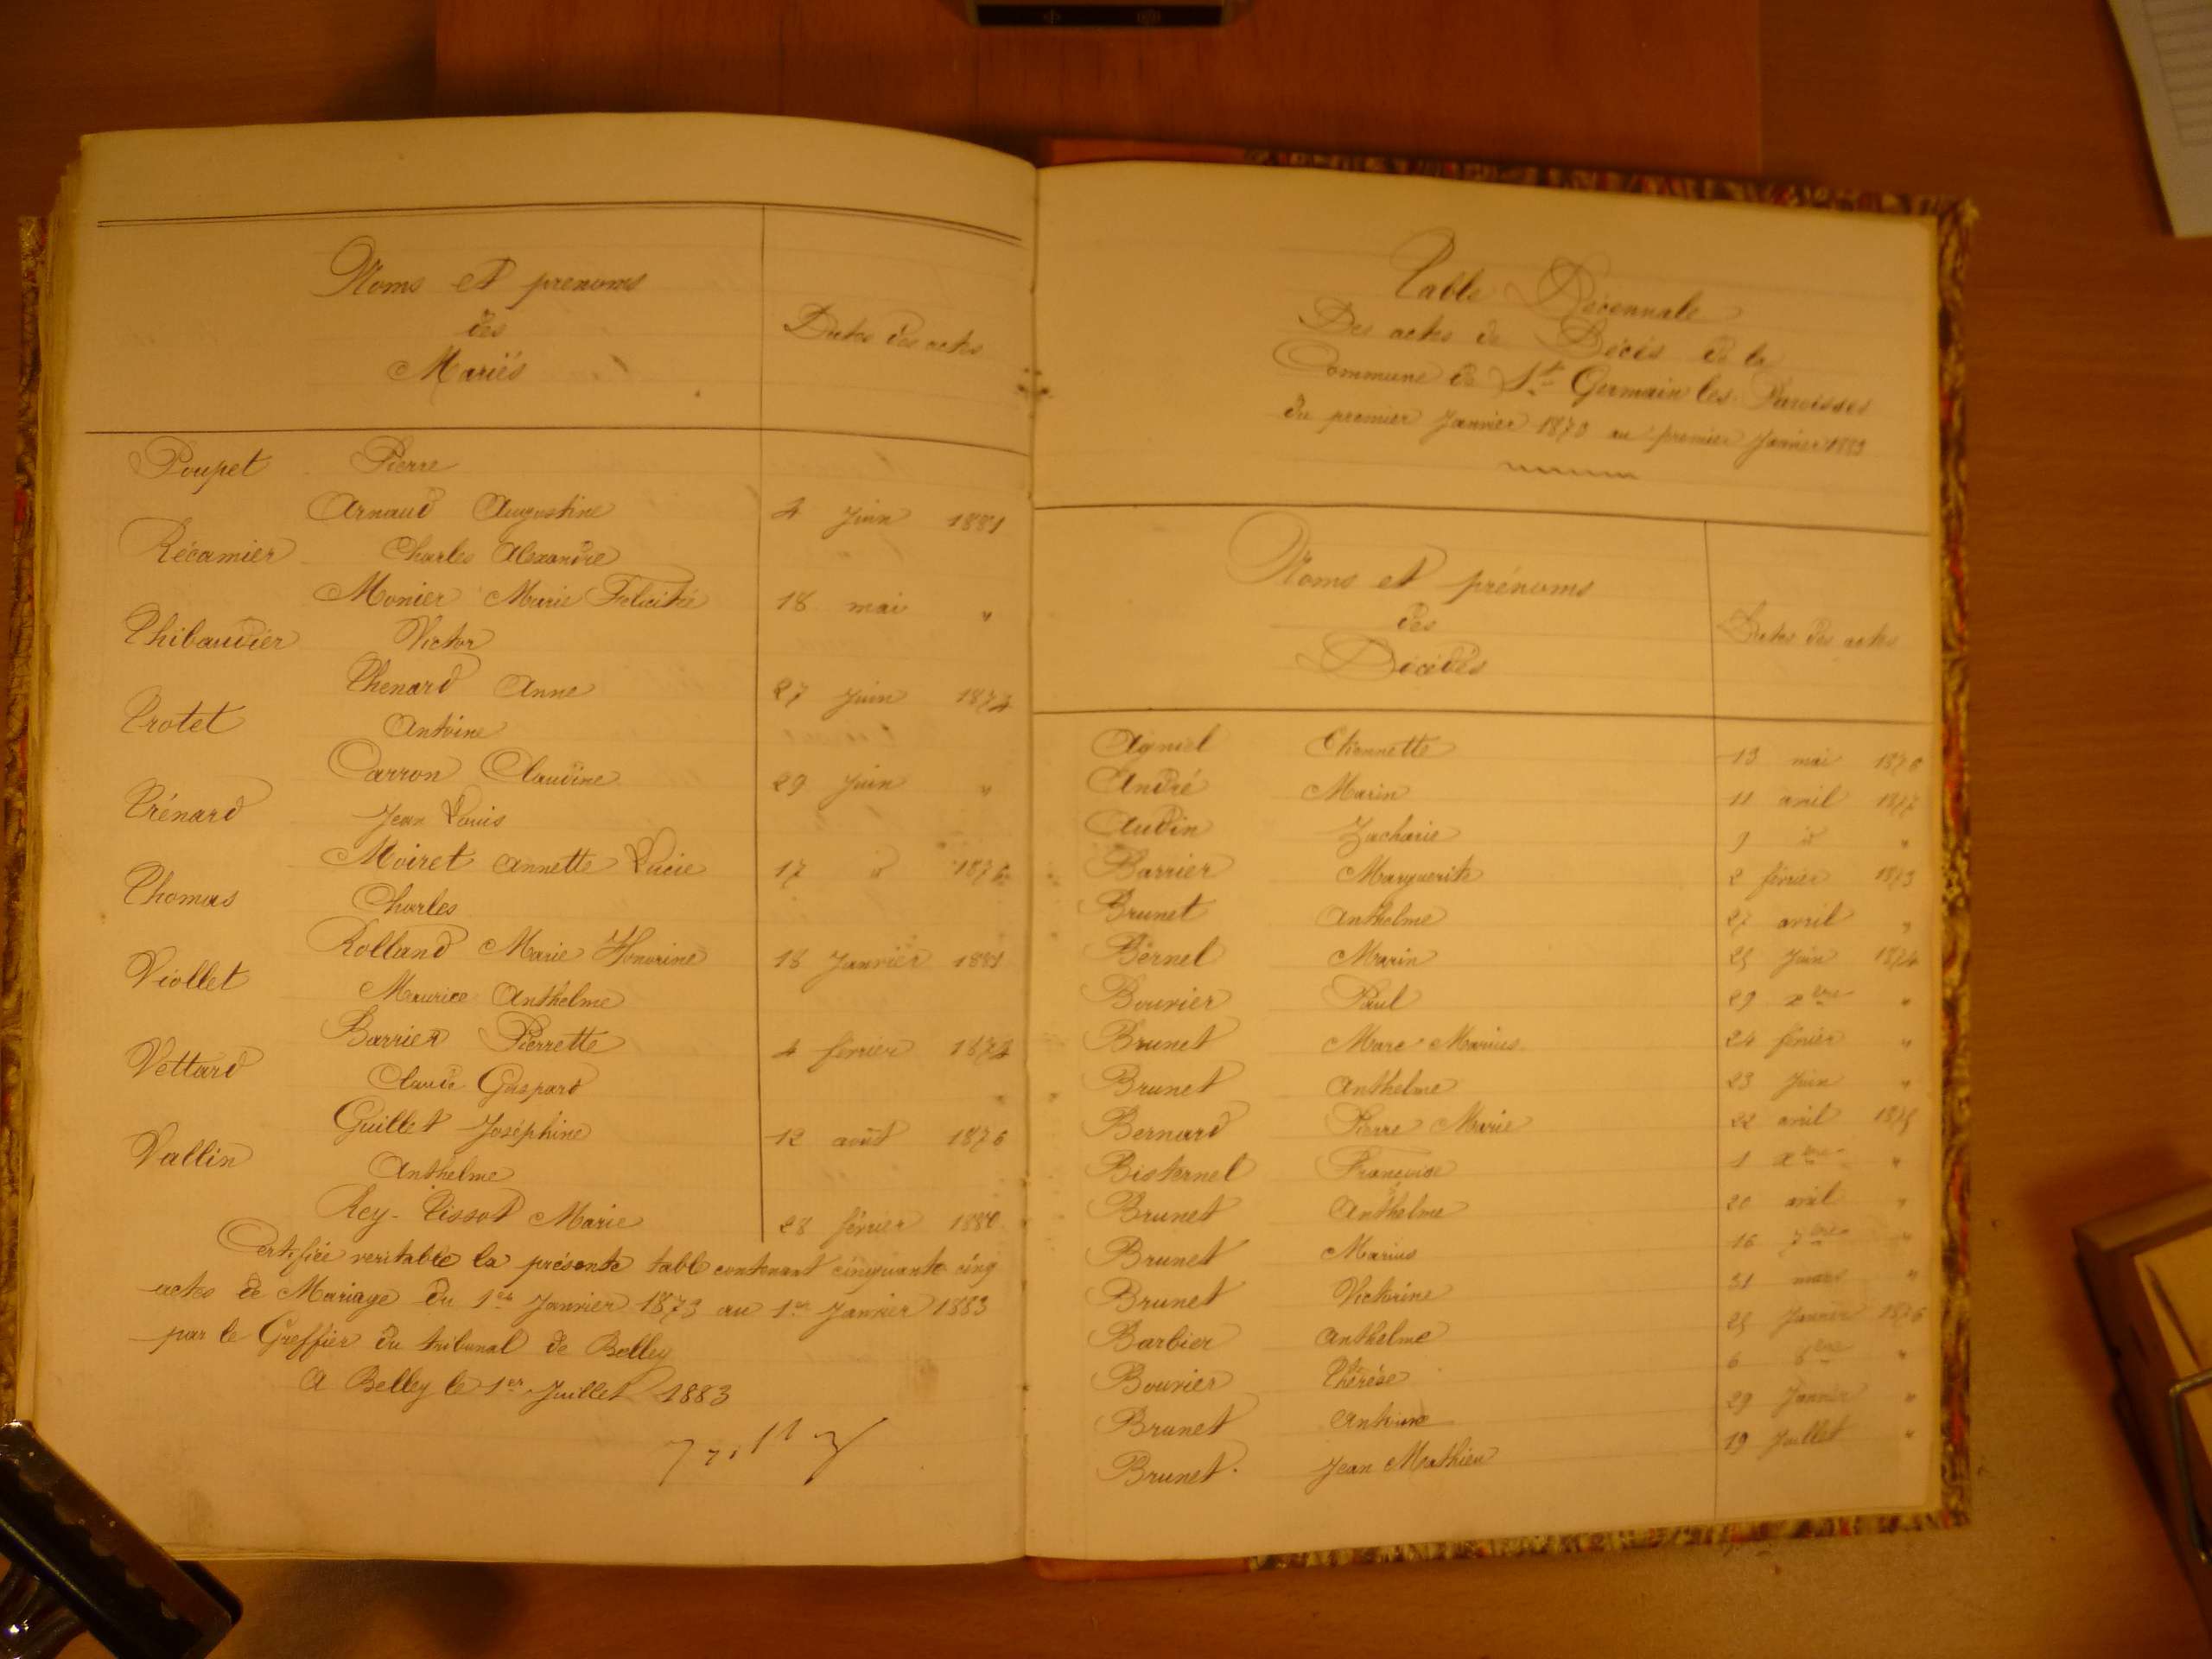 Noms et prenoms
des
Mariés
Dates des actes
Poupet Pierre
Arnaud Augustine 4 Juin 1881
Récamier Charles Alexandre
Monier Marie Felicité 18 mai "
Thibaudier Victor
Thenard Anne 27 Juin 1874
Trotet Antoine
Carron Claudine 29 Juin "
Trénard Jean Louis
Moiret Annette Lucie 17 id
Thomas Charles
Rolland Marie Honorine 18 Janvier 1881
Viollet Maurice Anthelme
Barrier Pierrette 4 février 1874
Vettard Claude Gaspard
Guillet Joséphine 12 août 1876
Vallin Anthelme
Rey-Tissot Marie 28 février 1880
Certifiée veritable la présente table contenant cinquante cinq
actes de Mariage du 1er Janvier 1873 au 1er Janvier 1883
par le Greffier du tribunal de Belley
A Belley le 1er Juillet 1883
Table Décennale
Des actes de Décès de la
Commune de St Germain les Paroisses
du premier Janvier 1873 au premier Janvier 1883
Noms et prénoms
des
Décédés
Dates des actes
Agniel Etiennette 13 mai 1876
André Marin 11 avril 1877
Audin Zacharie 9 id "
Barrier Marguerite 2 février 1873
Brunet Anthelme 27 avril "
Bernel Marin 25 Juin 1874
Bouvier Paul 29 xbre "
Brunet Marc Marius 24 février "
Brunet Anthelme 23 Juin "
Bernard Pierre Marie 22 avril 1875
Bisternel Françoise 1 xbre "
Brunet Anthelme 20 avril "
Brunet Marius 16 7bre "
Brunet Victorine 31 mars "
Barbier Anthelme 25 Janvier 1876
Bouvier Thérèse 6 8bre "
Brunet Antoine 29 Janvier "
Brunet Jean Mathieu 19 Juillet "